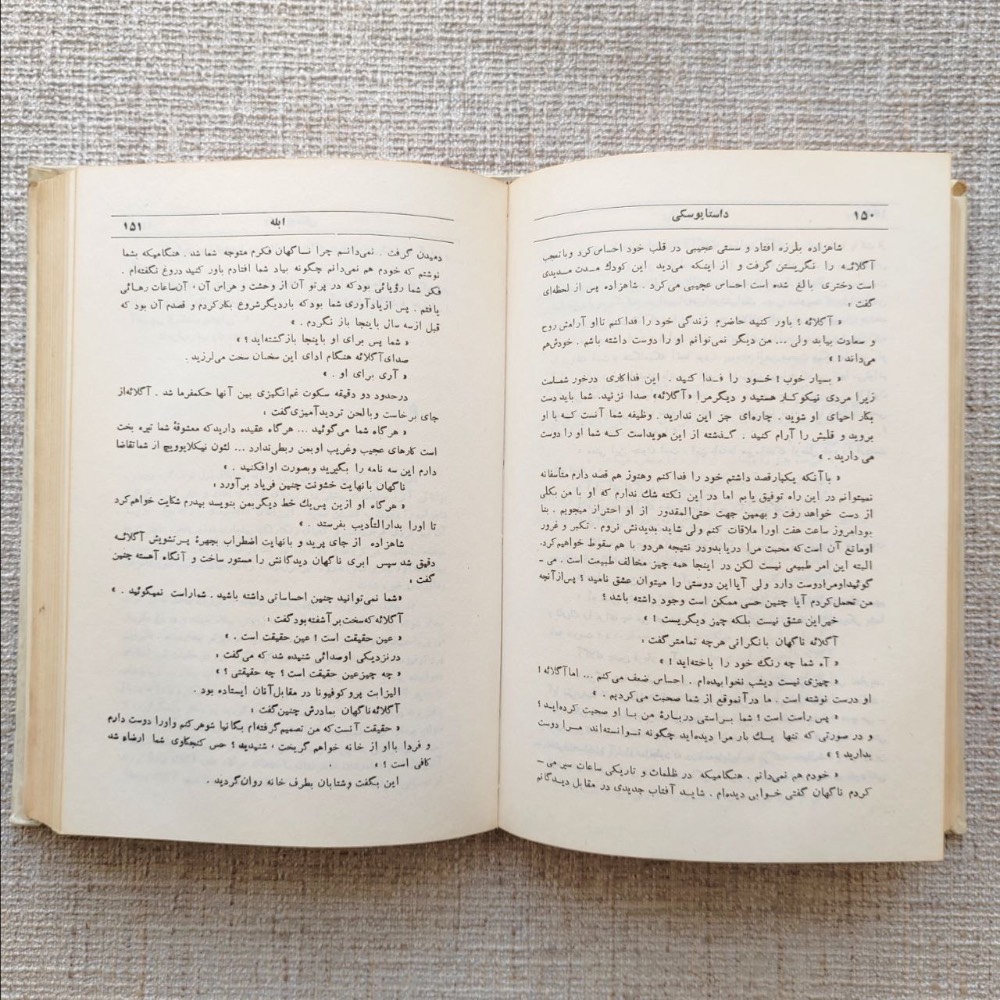 ۱۵۰ داستایوسکی
شاهزاده بلرزه افتاد و سستی عجیبی در قلب خود احساس کرد وبا تعجب
آگلائه را نگریستن گرفت و از اینکه می‌دید این کودک مدت مدیدی
است دختری بالغ شده است احساس عجیبی می‌کرد . شاهزاده پس از لحظه‌ای
گفت :
« آگلائه ! باور کنید حاضرم زندگی خود را فدا کنم تا او آرامش روح
و سعادت بیابد ولی ... من دیگر نمی‌توانم او را دوست داشته باشم . خودش هم
می‌داند ! »
« بسیار خوب ! خود را فدا کنید . این فداکاری درخور شماست
زیرا مردی نیکو کار هستید و دیگر مرا «آگلائه» صدا نزنید . شما باید دست
بکار احیای او شوید . چاره‌ای جز این ندارید . وظیفه شما آنست که با او
بروید و قلبش را آرام کنید . گذشته از این هویداست که شما او را دوست
می دارید . »
« با آنکه یکبار قصد داشتم خود را فدا کنم وهنوز هم قصد دارم متأسفانه
نمیتوانم در این راه توفیق یابم اما در این نکته شك ندارم که او با من بکلی
از دست خواهد رفت و بهمین جهت حتی‌المقدور از او احتراز میجویم . بنا
بود امروز ساعت هفت اورا ملاقات کنم ولی شاید بدیدنش نروم . تکبر و غرور
او مانع آن است که محبت مرا دریابد و در نتیجه هر دو با هم سقوط خواهیم کرد.
البته این امر طبیعی نیست لکن در اینجا همه چیز مخالف طبیعت است . می‌ -
گوئید او مرا دوست دارد ولی آیا این دوستی را میتوان عشق نامید ؟ پس از آنچه
من تحمل کردم آیا چنین حسی ممکن است وجود داشته باشد ؟
خیر این عشق نیست بلکه چیز دیگریست ! »
آگلائه ناگهان با نگرانی هر چه تمامتر گفت :
« آه شما چه رنگ خود را باخته‌اید ! »
« چیزی نیست دیشب نخوابیده‌ام . احساس ضعف می‌کنم ... اما آگلائه !
او درست نوشته است . ما در آنموقع از شما صحبت می‌کردیم . »
« پس راست است ! شما براستی دربارهٔ من با او صحبت کرده‌اید ؟
و در صورتی که تنها یك بار مرا دیده‌اید چگونه توانسته‌اند مرا دوست
بدارید ؟ »
« خودم هم نمی‌دانم . هنگامیکه در ظلمات و تاریکی ساعات سیر می -
کردم ناگهان گفتی خوابی دیده‌ام . شاید آفتاب جدیدی در مقابل دیدگانم
ابله ۱۵۱
دمیدن گرفت . نمی‌دانم چرا ناگهان فکرم متوجه شما شد . هنگامیکه بشما
نوشتم که خودم هم نمی‌دانم چگونه بیاد شما افتادم باور کنید دروغ نگفته‌ام .
فکر شما رؤیائی بود که در پرتو آن از وحشت و هراس آن ؛ آن ساعات رهائی
یافتم . پس از یادآوری شما بود که بار دیگر شروع بکار کردم و قصدم آن بود که
قبل از سه سال باینجا باز نگردم . »
« شما پس برای او باینجا بازگشته‌اید ؟ »
صدای آگلائه هنگام ادای این سخنان سخت می‌لرزید .
« آری برای او . »
در حدود دو دقیقه سکوت غم‌انگیزی بین آنها حکمفرما شد . آگلائه از
جای برخاست وبالحن تردید آمیزی گفت :
« هر گاه شما می‌گوئید ... هر گاه عقیده دارید که معشوقهٔ شما تیره بخت
است کارهای عجیب وغریب او بمن ربطی ندارد ... لئون نیکلایوویچ از شما تقاضا
دارم این سه نامه را بگیرید و بصورت او افکنید . »
ناگهان با نهایت خشونت چنین فریاد برآورد :
« هر گاه او از این پس یك خط دیگر بمن بنویسد بپدرم شکایت خواهم کرد
تا او را بدارالتأدیب بفرستد . »
شاهزاده از جای پرید و با نهایت اضطراب بچهرهٔ پرتشویش آگلائه
دقیق شد سپس ابری ناگهان دیدگانش را مستور ساخت و آنگاه آهسته چنین
گفت :
«شما نمی‌توانید چنین احساساتی داشته باشید . شما راست نمیگوئید . »
آگلائه که سخت بر آشفته بود گفت :
« عین حقیقت است ! عین حقیقت است . »
در نزدیکی او صدائی شنیده شد که می‌گفت :
« چه چیز عین حقیقت است ؟ چه حقیقتی ؟ »
الیزابت پروکوفیونا در مقابل آنان ایستاده بود .
آگلائه ناگهان بمادرش چنین گفت :
« حقیقت آنست که من تصمیم گرفته‌ام بگانیا شوهر کنم واورا دوست دارم
و فردا با او از خانه خواهم گریخت ، شنیدید ؟ حس کنجکاوی شما ارضاء شد
کافی است ؟ »
این بگفت وشتابان بطرف خانه روان گردید .